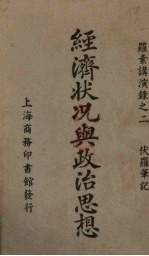 羅素講演錄之二　伏羅筆記
經濟狀況與政治思想
上海商務印書館發行